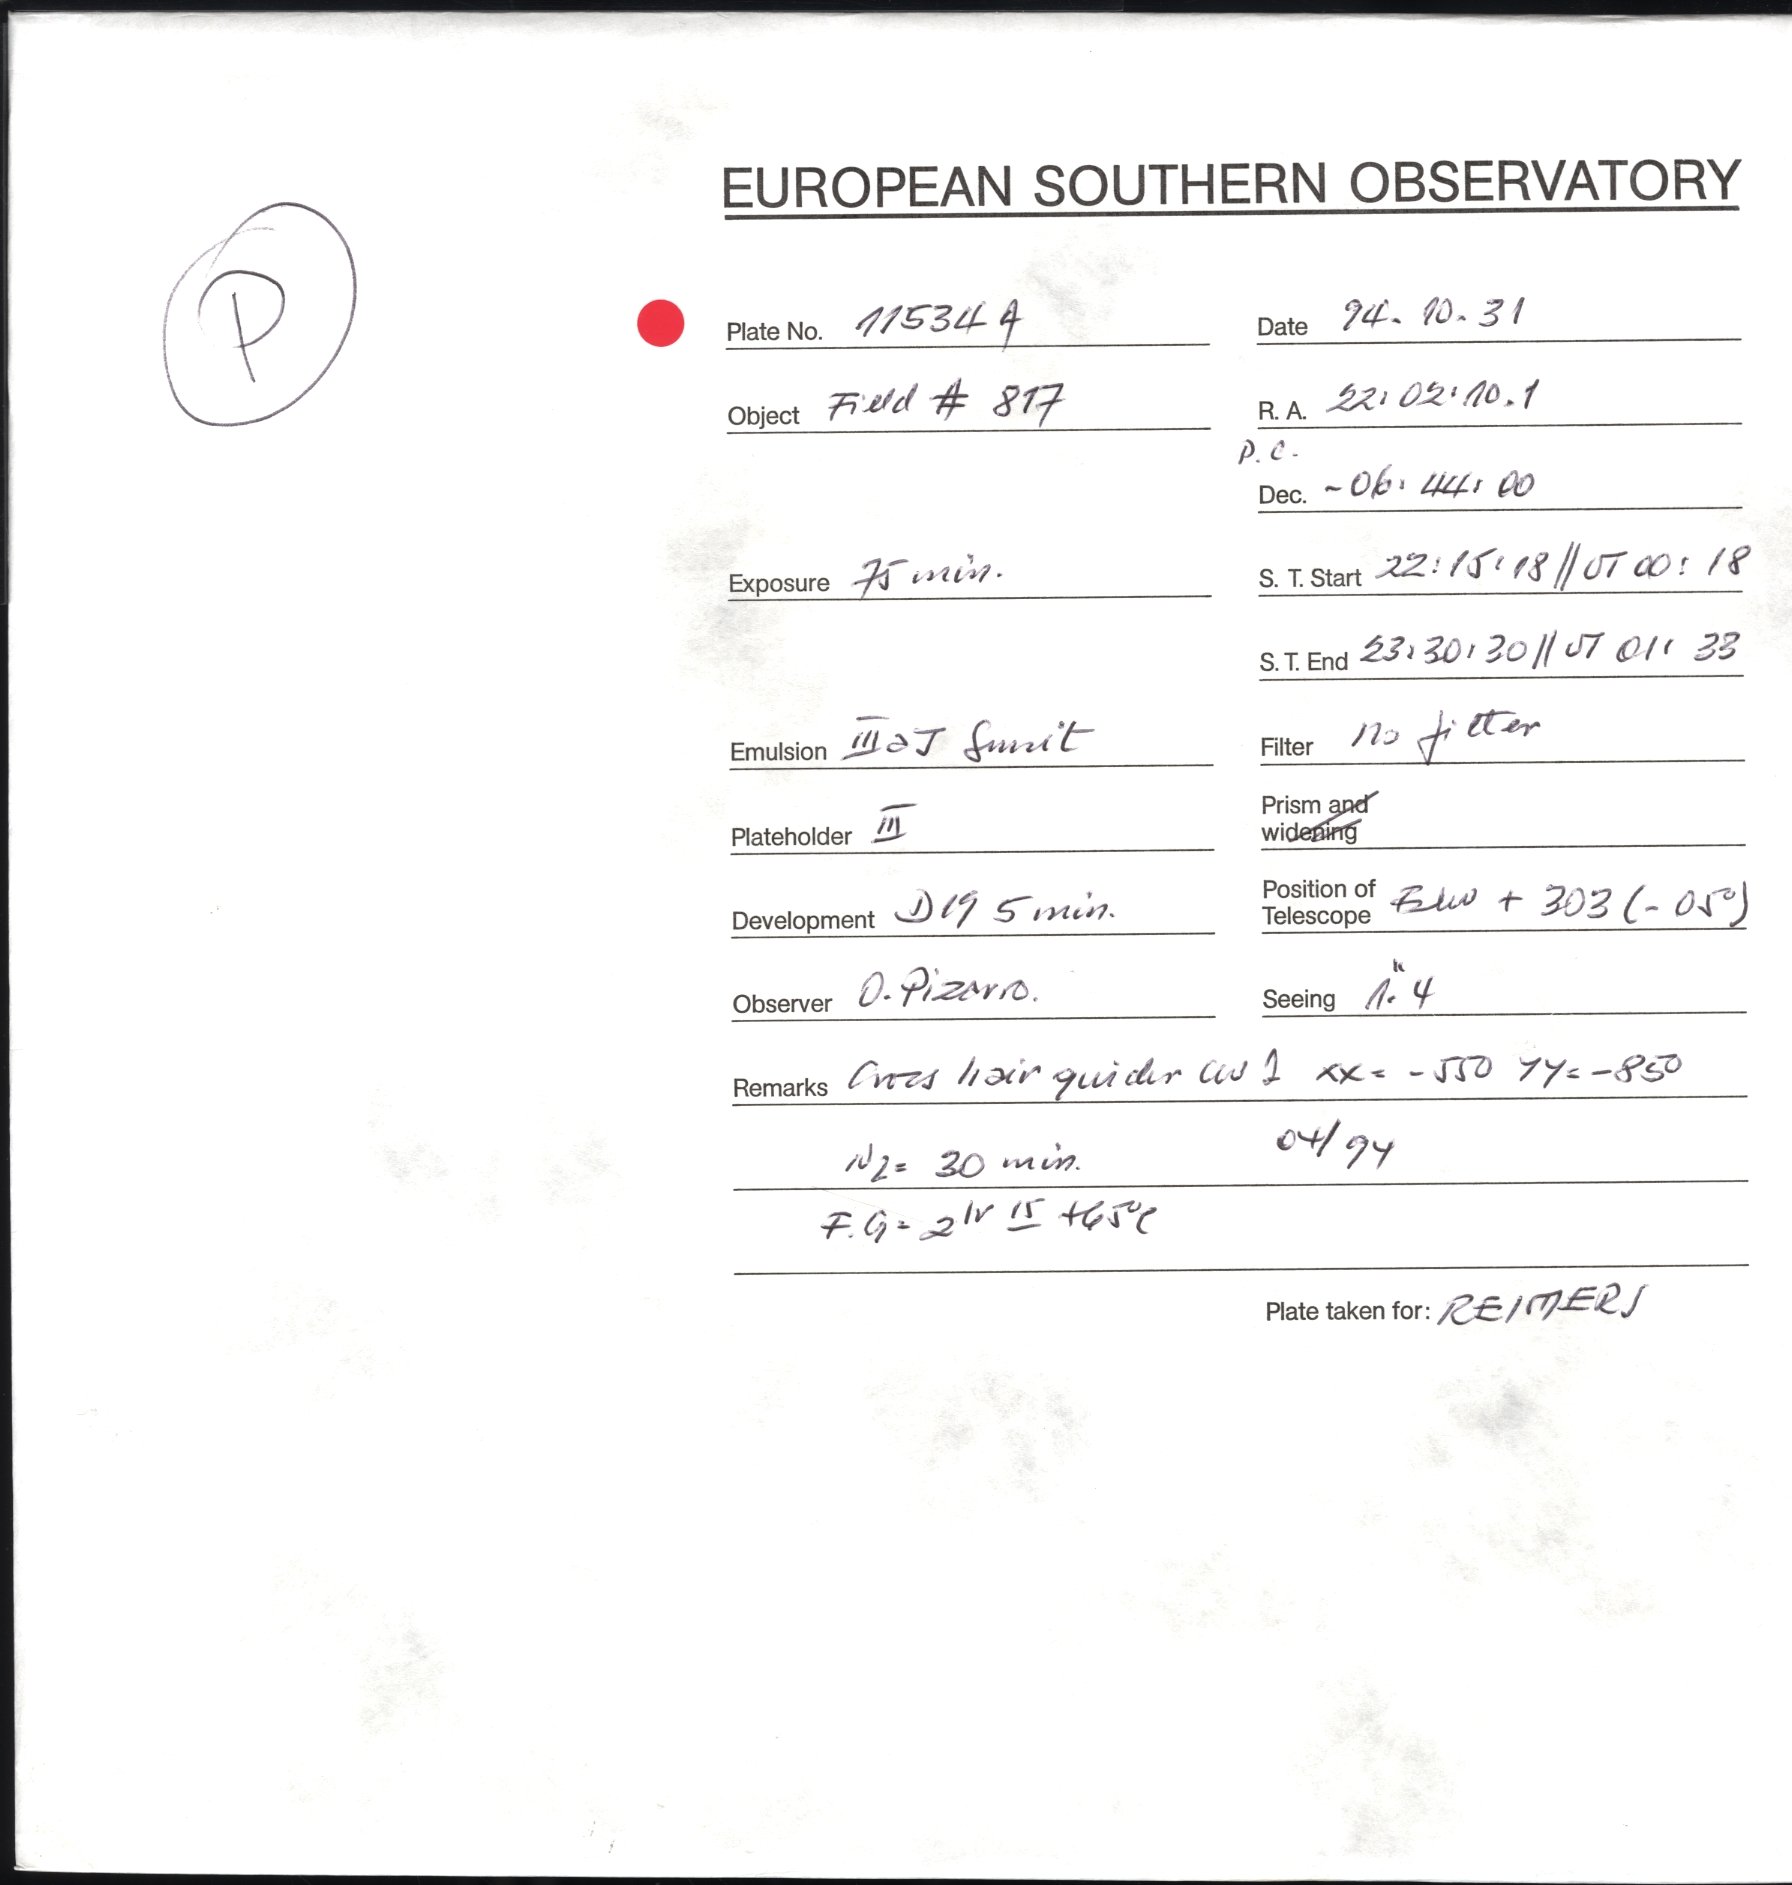 EUROPEAN SOUTHERN OBSERVATORY
P
Plate No. 11534 A
Date 94. 10. 31
Object Field # 817
R. A. 22: 02: 10.1
P. C.
Dec. -06: 44: 00
Exposure 75 min.
S. T. Start 22:15:18 // UT 00:18
S. T. End 23:30:30 // UT 01: 33
Emulsion III aJ
Filter no filter
Plateholder III
Prism and widening
Development D19 5 min.
Position of Telescope + 303 (-05°)
Observer O. Pizarro.
Seeing 1."4
Remarks Cross hair guider XX= -550 YY= -850
N2= 30 min. 04/94
F.G= 2hr 15 +65°C
Plate taken for: REIMERS